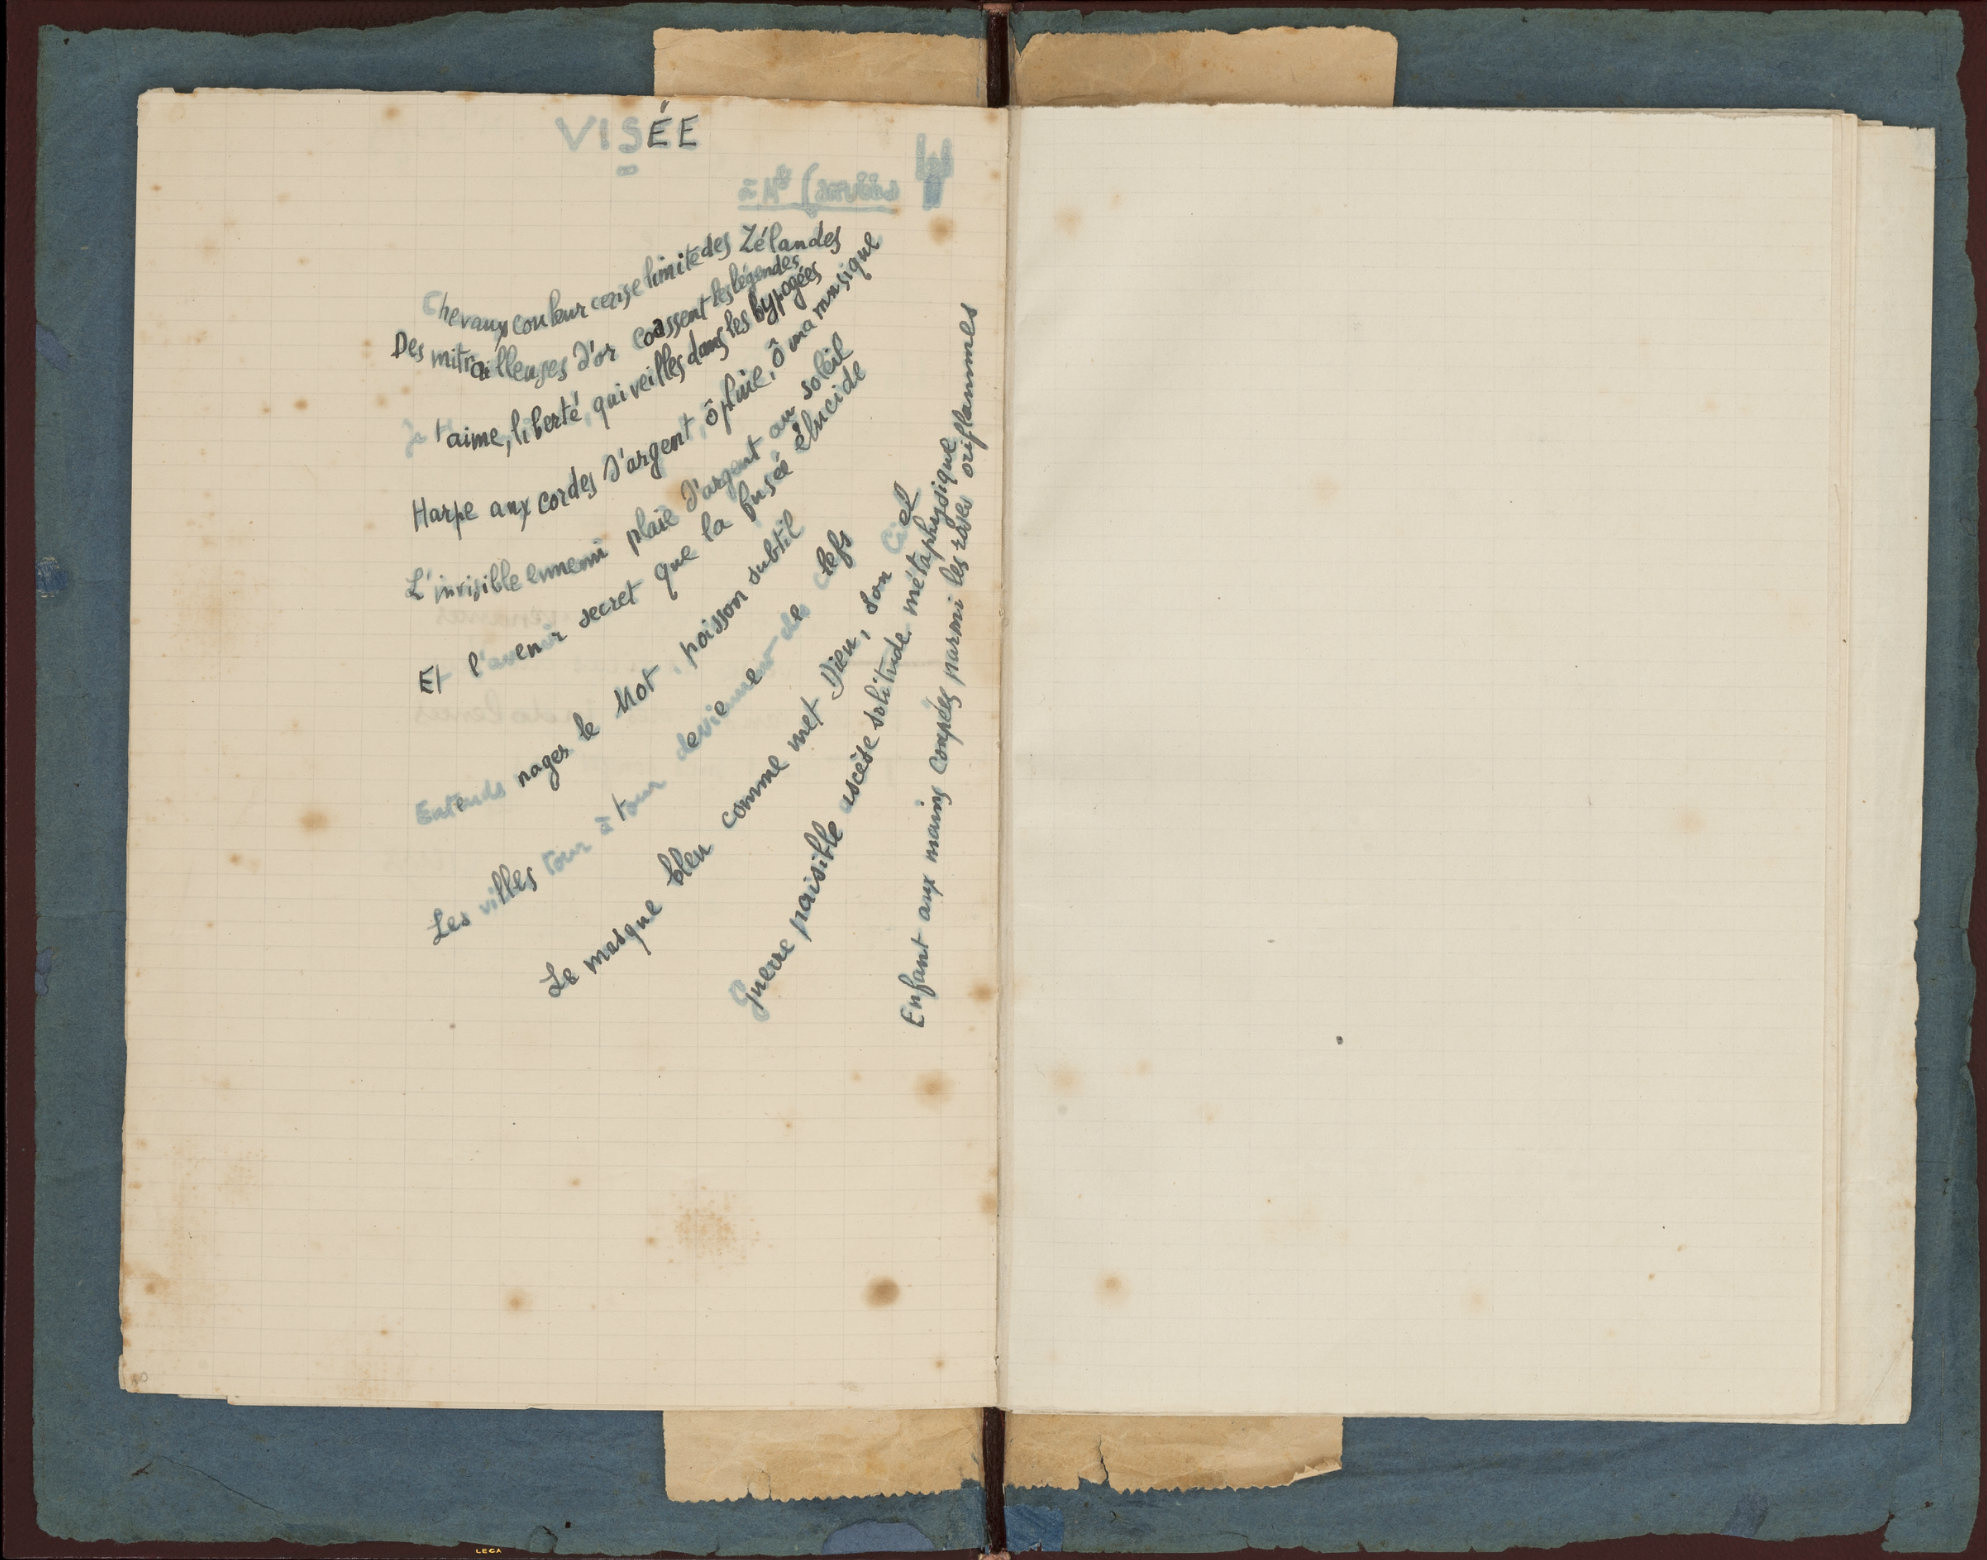 VISÉE
à Mᵐᵉ
Chevaux couleur cerise limite des Zélandes
Des mitrailleuses d'or coassent les légendes
Je t'aime, liberté, qui veilles dans les hypogées
Harpe aux cordes d'argent, ô pluie, ô ma musique
L'invisible ennemi plaie d'argent au soleil
Et l'avenir secret que la fusée élucide
Entends nager le Mot, poisson subtil
Les villes tour à tour deviennent des clefs
Le masque bleu comme met Dieu, son ciel
Guerre paisible ascèse solitude métaphysique
Enfant aux mains coupées parmi les roses oriflammes